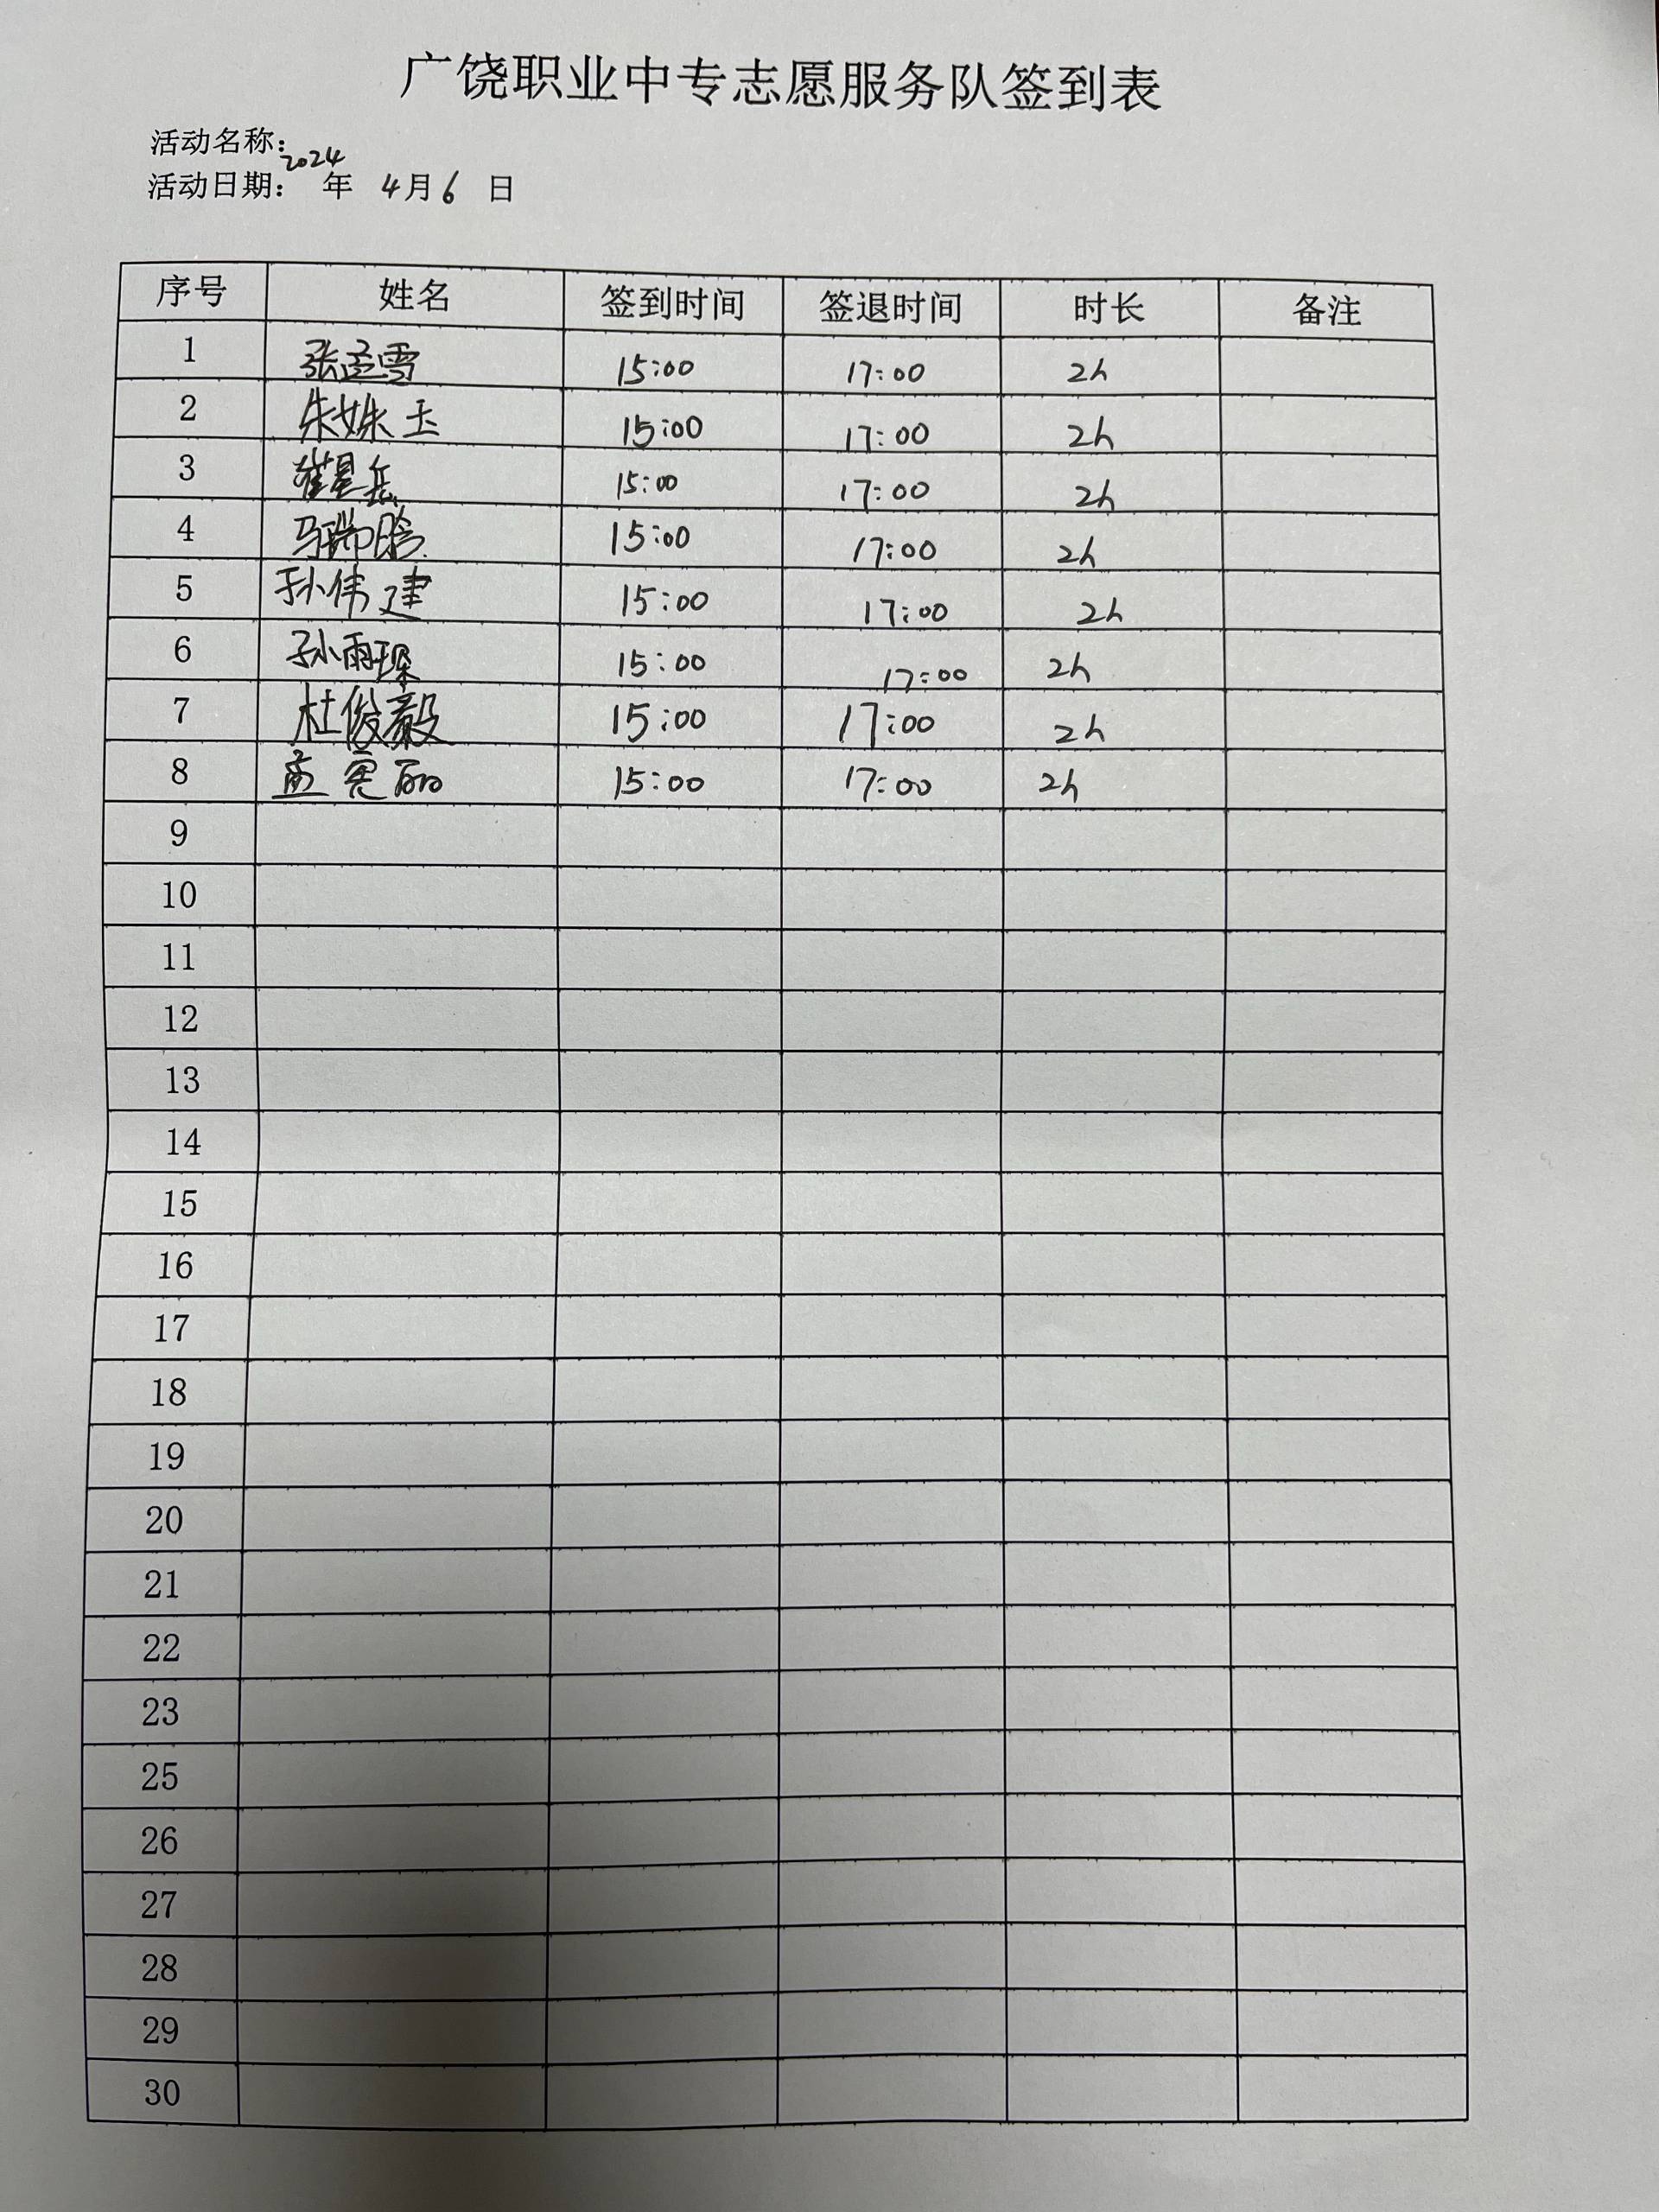 广饶职业中专志愿服务队签到表
活动名称：
活动日期：2024年 4月6 日
序号 姓名 签到时间 签退时间 时长 备注
1 张孟雪 15:00 17:00 2h
2 朱姝玉 15:00 17:00 2h
3 崔星岳 15:00 17:00 2h
4 马瑞晗 15:00 17:00 2h
5 孙伟建 15:00 17:00 2h
6 孙雨琛 15:00 17:00 2h
7 杜俊毅 15:00 17:00 2h
8 孟 丽 15:00 17:00 2h
9
10
11
12
13
14
15
16
17
18
19
20
21
22
23
25
26
27
28
29
30